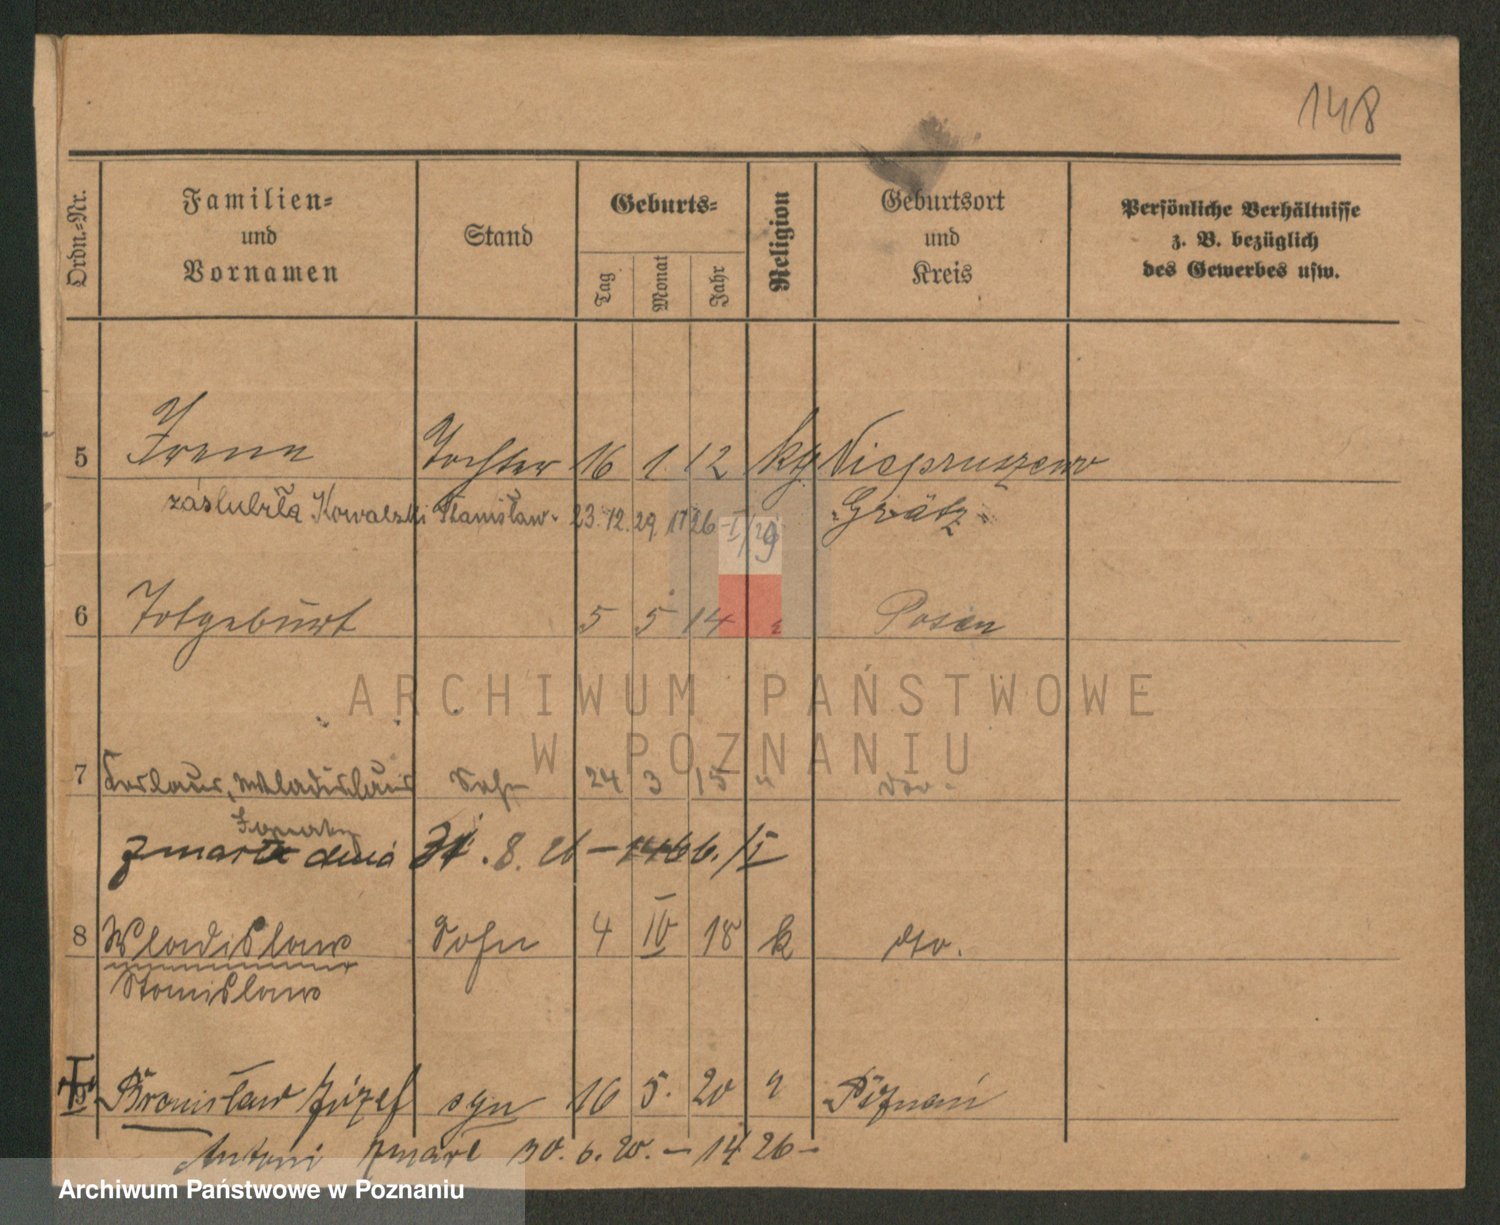 148
Ordn.-Nr.
Familien-
und
Vornamen
Stand
Geburts-
Tag
Monat
Jahr
Religion
Geburtsort
und
Kreis
Persönliche Verhältnisse
z. B. bezüglich
des Gewerbes usw.
5 Irena Tochter 16 1. 12 kg Niepruszewo
záslubiła Kowalski Stanisław 23.12.29. 1726-I/29 Grätz
6 Totgeburt 5 5 14 " Posen
ARCHIWUM PAŃSTWOWE
W POZNANIU
7 Wladislaus Sohn 24 3 15 " dto.
Ignatz
zmarł dnia 31.8.26 - 1466./I
8 Wladislaus Sohn 4 IV 18 k dto.
Stanislaus
9 Bronisław Józef syn 16 5. 20 " Poznań
Antoni zmarł 30.6.20. - 1426 -
Archiwum Państwowe w Poznaniu